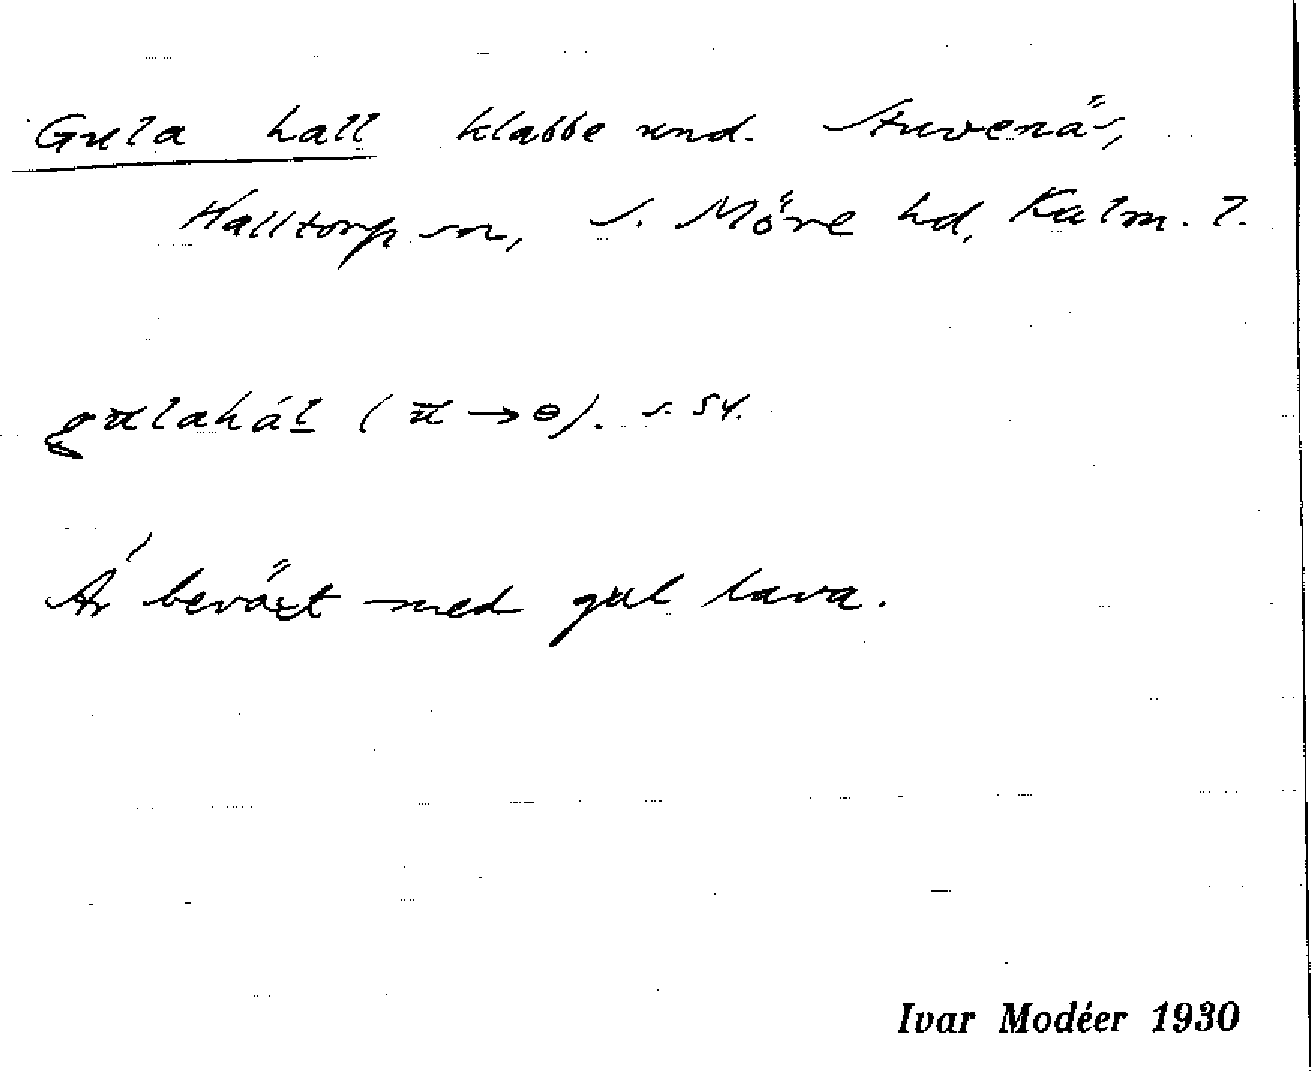 Gula hall klabbe und. Stuvenäs,
Halltorp sn, S. Möre hd, Kalm. l.
(u → ɵ). s. 54.
Är beväxt med gul lava.
Ivar Modéer 1930